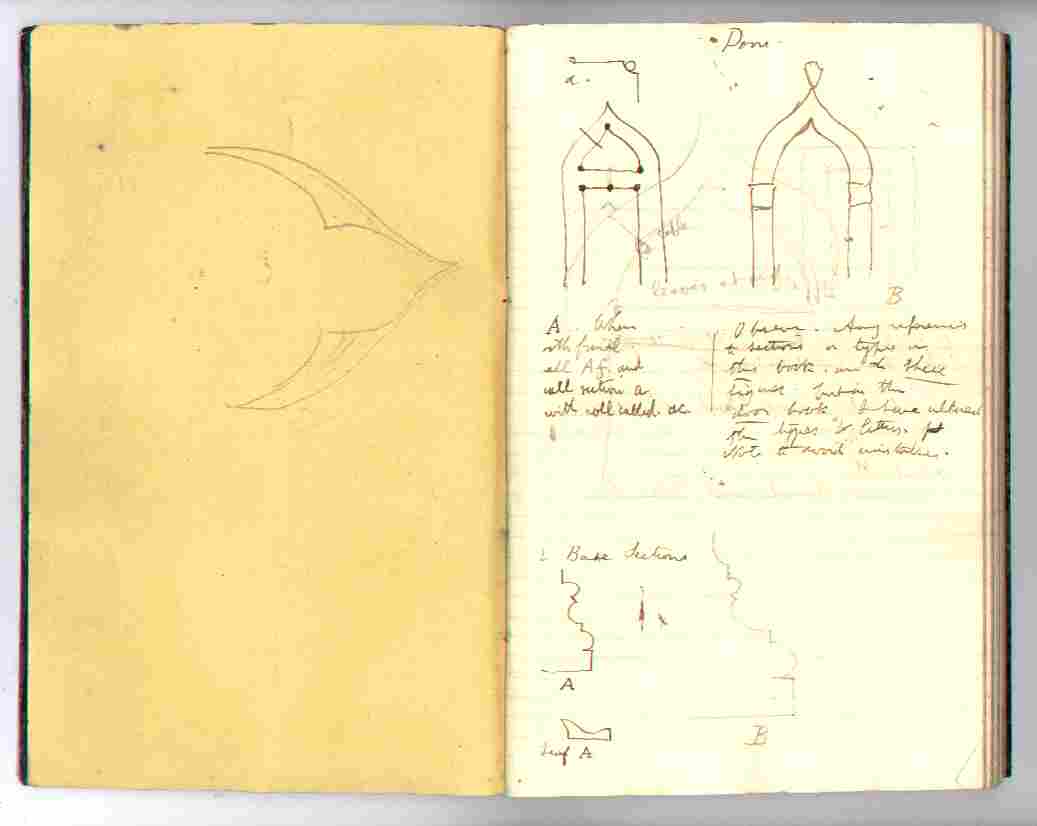 Door
a.
cable
leaves at end
B
A. When
with finial.
all A f. and
call section a.
with roll called. &c
Observe. Any references
to sections or types in
this book. are to these
figures. but in the
door book I have altered
the types to letters.
Note to avoid mistakes.
Base Sections
A
B
Leaf A